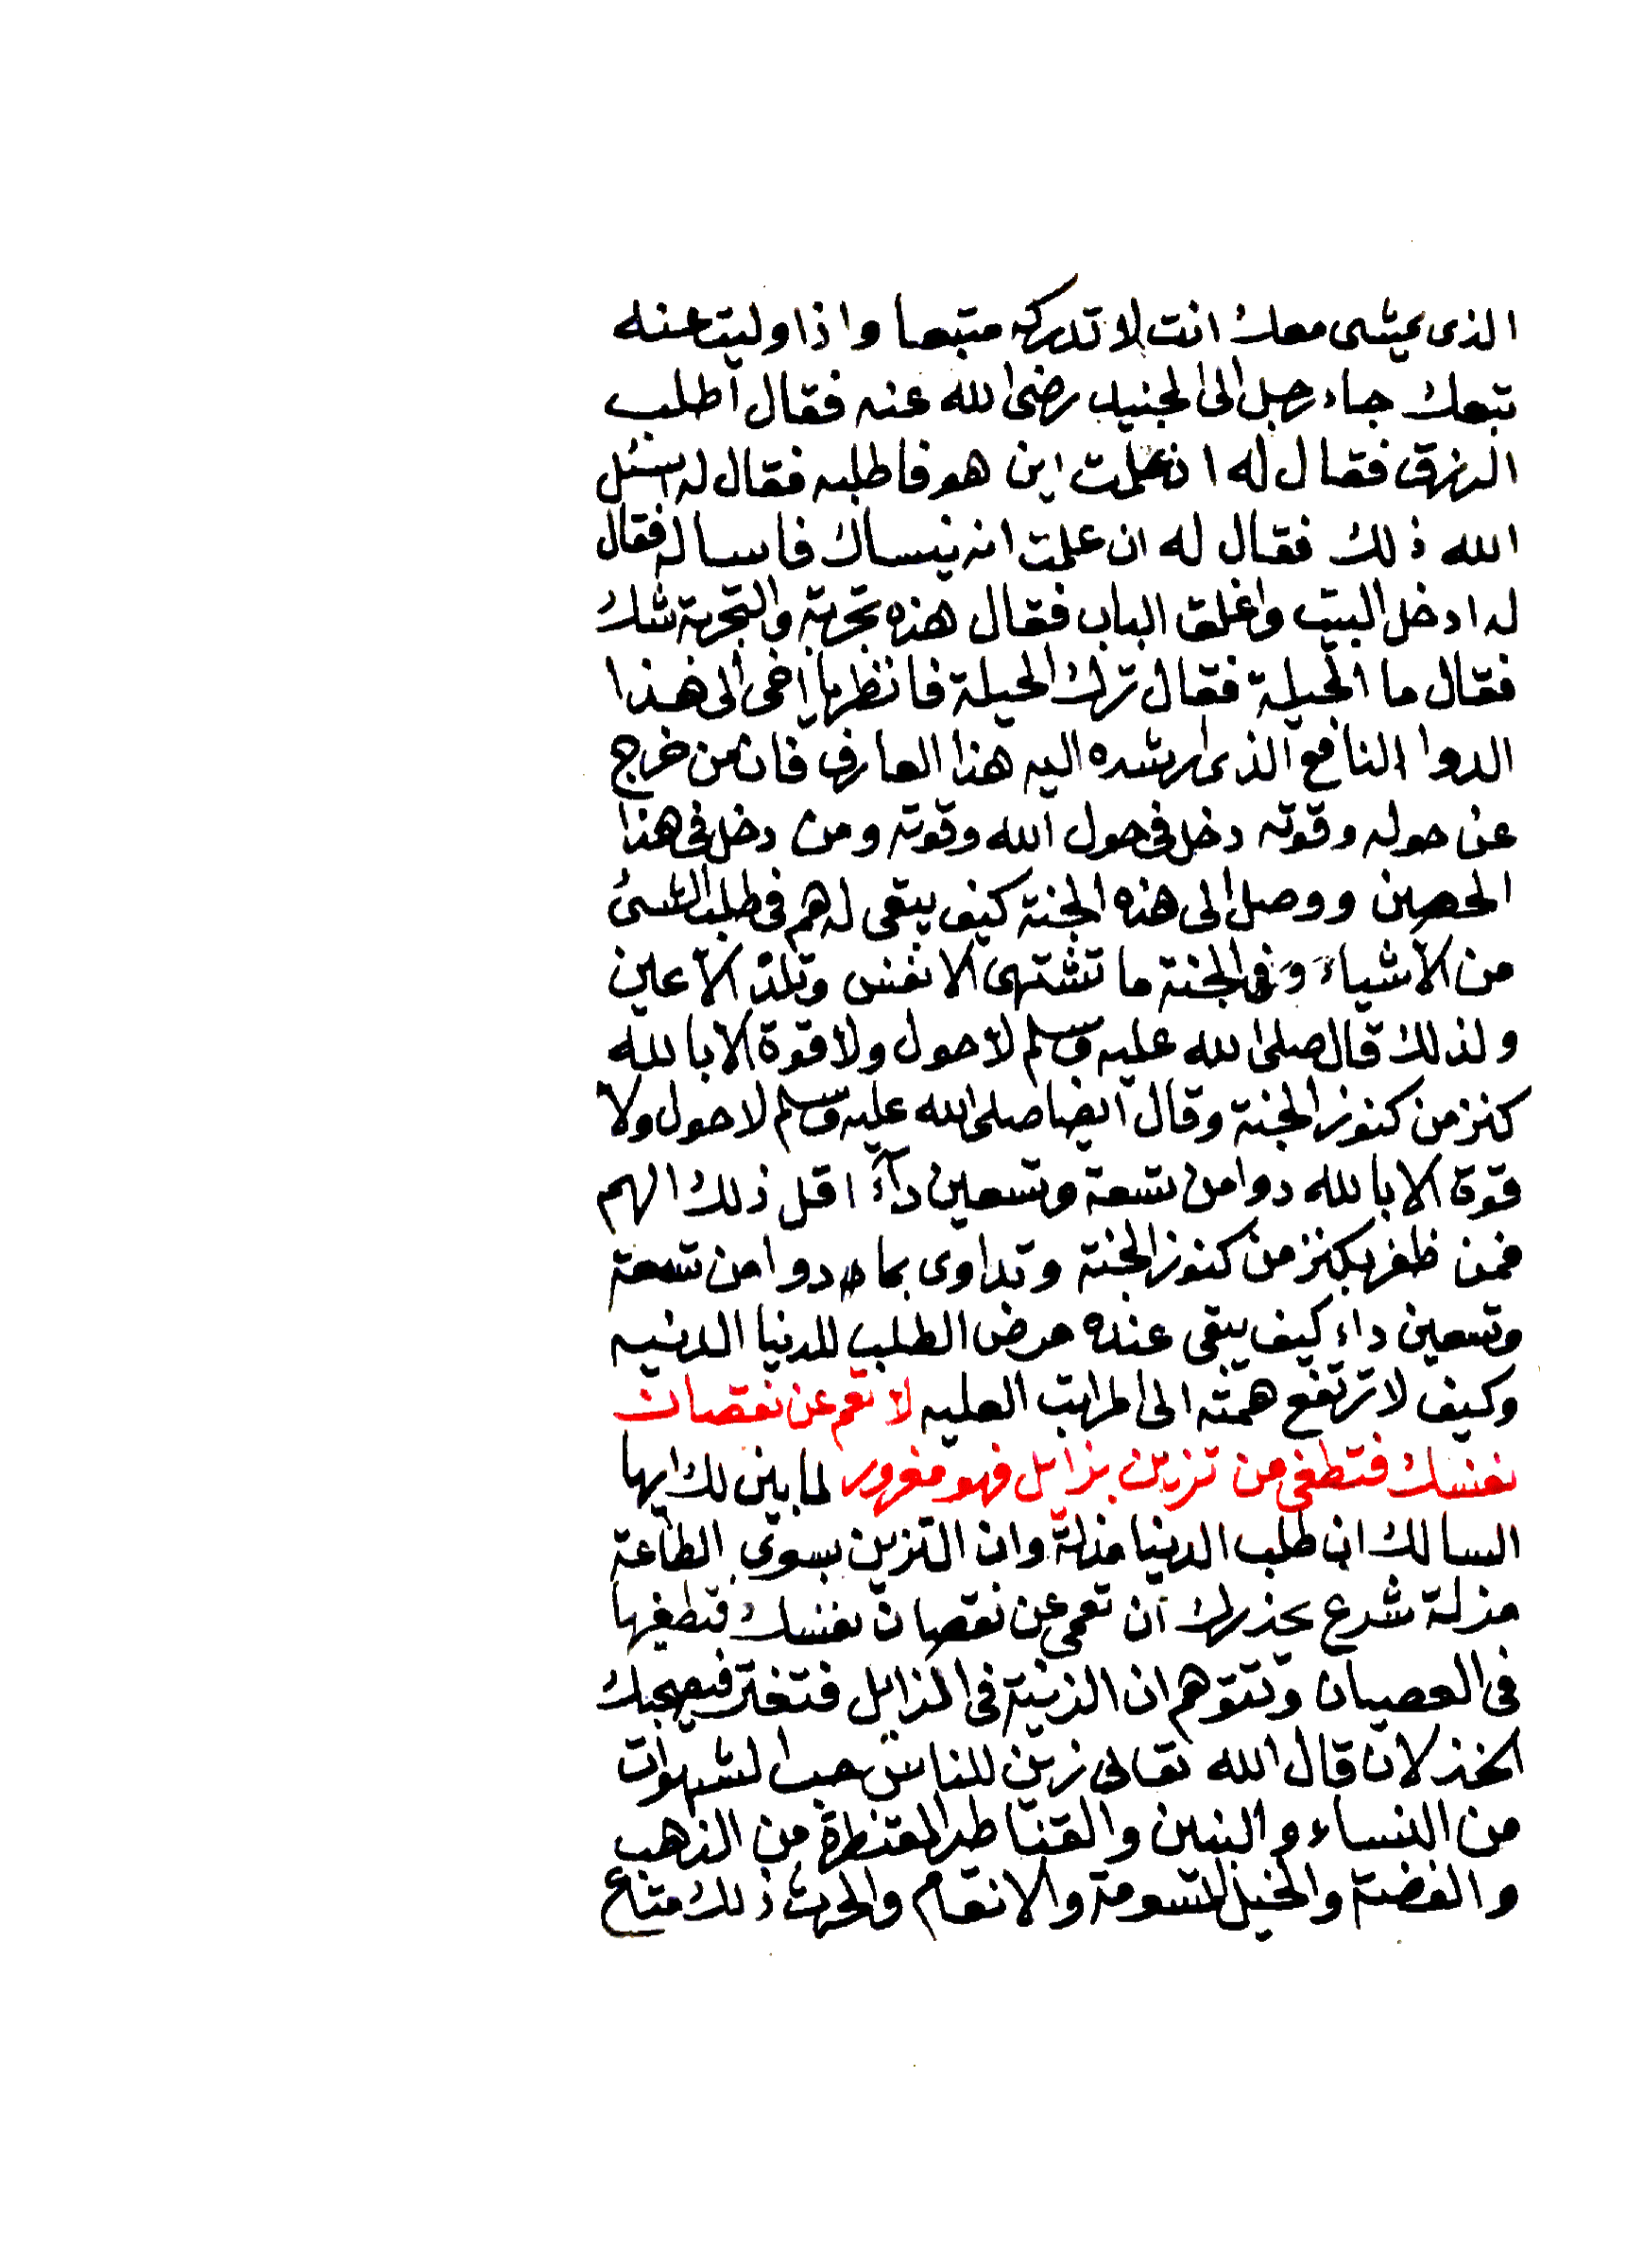 الذى يمشى معك انت لا تدركه متبعا واذا وليت عنه
تبعك جاء رجل الى الجنيد رضى الله عنه فقال اطلب
الرزق فقال له ان علمت اين هو فاطلبه فقال له اسئل
الله ذلك فقال له ان علمت انه ينساك فاساله فقال
له ادخل البيت واغلق الباب فقال هذه تجربة والتجربة شك
فقال ما الحيلة فقال ترك الحيلة فانظر يا اخى الى هذا
الدوا النافع الذى ارشده اليه هذا العارف فان من خرج
عن حوله وقوته دخل فى حول الله وقوته ومن دخل فى هذا
الحصين ووصل الى هذه الجنة كيف يبقى له هم فى طلب الشئ
من الاشياء وفى الجنة ما تشتهى الانفس وتلذ الاعين
ولذلك قال صلى الله عليه وسلم لا حول ولا قوة الا بالله
كنز من كنوز الجنة وقال ايضا صلى الله عليه وسلم لا حول ولا
قوة الا بالله دوا من تسعة وتسعين داء اقل ذلك الهم
فمن ظفر بكنز من كنوز الجنة وتداوى بما دوا من تسعة
وتسعين داء كيف يبقى عنده مرض الطلب للدنيا الدنيه
وكيف لا ترتفع همته الى المراتب العليه لا تعم عن نقصان
نفسك فتطغى من تزين بزابل فهو مغرور لما بين لك ايها
السالك ان طلب الدنيا مذلة وان التزين بسوى الطاعة
مزلة شرع يحذرك ان تعمى عن نقصان نفسك فتطغيها
فى العصيان وتتوهم ان الزينة فى المزابل فتغتر فيصحبك
الخذلان قال الله تعالى زين للناس حب الشهوات
من النساء والبنين والقناطير المقنطرة من الذهب
والفضة والخيل المسومة والانعام والحرث ذلك متاع